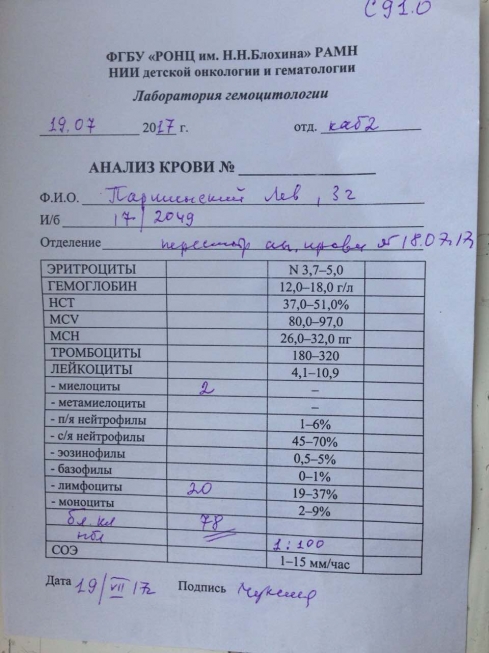 С91.0
ФГБУ «РОНЦ им. Н.Н.Блохина» РАМН
НИИ детской онкологии и гематологии
Лаборатория гемоцитологии
19.07 2017 г. отд. каб2
АНАЛИЗ КРОВИ №
Ф.И.О. Лев, 3 г
И/б 17/2049
Отделение пересмотр ан. крови от 18.07.17
ЭРИТРОЦИТЫ N 3,7–5,0
ГЕМОГЛОБИН 12,0–18,0 г/л
НСТ 37,0–51,0%
MCV 80,0–97,0
МСН 26,0–32,0 пг
ТРОМБОЦИТЫ 180–320
ЛЕЙКОЦИТЫ 4,1–10,9
- миелоциты 2 –
- метамиелоциты –
- п/я нейтрофилы 1–6%
- с/я нейтрофилы 45–70%
- эозинофилы 0,5–5%
- базофилы 0–1%
- лимфоциты 20 19–37%
- моноциты 2–9%
бл. кл 78
нбл 1:100
СОЭ 1–15 мм/час
Дата 19/VII 17г Подпись